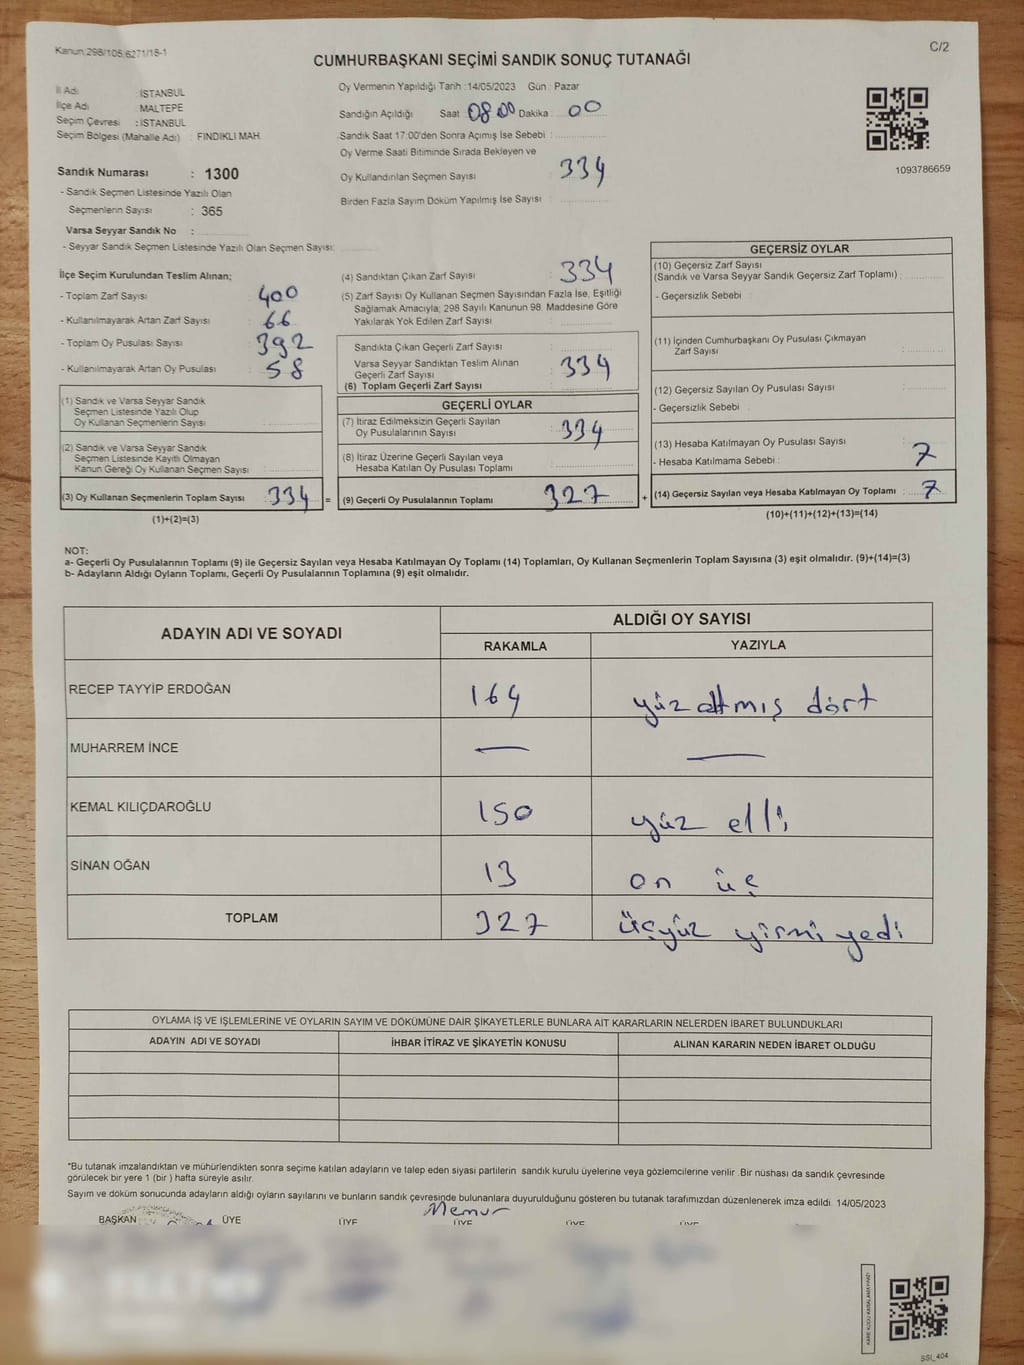 Kanun 298/105,6271/18-1
C/2
CUMHURBAŞKANI SEÇİMİ SANDIK SONUÇ TUTANAĞI
İl Adı : İSTANBUL
İlçe Adı : MALTEPE
Seçim Çevresi : İSTANBUL
Seçim Bölgesi (Mahalle Adı) : FINDIKLI MAH.
Oy Vermenin Yapıldığı Tarih :14/05/2023 Gün : Pazar
Sandığın Açıldığı Saat : 08 00 Dakika : 00
Sandık Saat 17:00'den Sonra Açımış İse Sebebi :
Oy Verme Saati Bitiminde Sırada Bekleyen ve
Oy Kullandırılan Seçmen Sayısı : 334
Birden Fazla Sayım Döküm Yapılmış İse Sayısı :
1093786659
Sandık Numarası : 1300
- Sandık Seçmen Listesinde Yazılı Olan
Seçmenlerin Sayısı : 365
Varsa Seyyar Sandık No :
- Seyyar Sandık Seçmen Listesinde Yazılı Olan Seçmen Sayısı:
İlçe Seçim Kurulundan Teslim Alınan;
- Toplam Zarf Sayısı : 400
- Kullanılmayarak Artan Zarf Sayısı : 66
- Toplam Oy Pusulası Sayısı : 392
- Kullanılmayarak Artan Oy Pusulası : 58
(1) Sandık ve Varsa Seyyar Sandık
Seçmen Listesinde Yazılı Olup
Oy Kullanan Seçmenlerin Sayısı :
(2) Sandık ve Varsa Seyyar Sandık
Seçmen Listesinde Kayıtlı Olmayan
Kanun Gereği Oy Kullanan Seçmen Sayısı :
(3) Oy Kullanan Seçmenlerin Toplam Sayısı : 334 =
(1)+(2)=(3)
(4) Sandıktan Çıkan Zarf Sayısı : 334
(5) Zarf Sayısı Oy Kullanan Seçmen Sayısından Fazla İse, Eşitliği
Sağlamak Amacıyla; 298 Sayılı Kanunun 98. Maddesine Göre
Yakılarak Yok Edilen Zarf Sayısı :
Sandıkta Çıkan Geçerli Zarf Sayısı :
Varsa Seyyar Sandıktan Teslim Alınan
Geçerli Zarf Sayısı :
(6) Toplam Geçerli Zarf Sayısı : 334
GEÇERLİ OYLAR
(7) İtiraz Edilmeksizin Geçerli Sayılan
Oy Pusulalarının Sayısı : 334
(8) İtiraz Üzerine Geçerli Sayılan veya
Hesaba Katılan Oy Pusulası Toplamı :
(9) Geçerli Oy Pusulalarının Toplamı : 327 +
GEÇERSİZ OYLAR
(10) Geçersiz Zarf Sayısı
(Sandık ve Varsa Seyyar Sandık Geçersiz Zarf Toplamı) :
- Geçersizlik Sebebi :
(11) İçinden Cumhurbaşkanı Oy Pusulası Çıkmayan
Zarf Sayısı :
(12) Geçersiz Sayılan Oy Pusulası Sayısı :
- Geçersizlik Sebebi :
(13) Hesaba Katılmayan Oy Pusulası Sayısı
- Hesaba Katılmama Sebebi : 7
(14) Geçersiz Sayılan veya Hesaba Katılmayan Oy Toplamı : 7
(10)+(11)+(12)+(13)=(14)
NOT:
a- Geçerli Oy Pusulalarının Toplamı (9) ile Geçersiz Sayılan veya Hesaba Katılmayan Oy Toplamı (14) Toplamları, Oy Kullanan Seçmenlerin Toplam Sayısına (3) eşit olmalıdır. (9)+(14)=(3)
b- Adayların Aldığı Oyların Toplamı, Geçerli Oy Pusulalarının Toplamına (9) eşit olmalıdır.
ADAYIN ADI VE SOYADI
ALDIĞI OY SAYISI
RAKAMLA YAZIYLA
RECEP TAYYİP ERDOĞAN 164 yüz altmış dört
MUHARREM İNCE — —
KEMAL KILIÇDAROĞLU 150 yüz elli
SİNAN OĞAN 13 on üç
TOPLAM 327 üçyüz yirmi yedi
OYLAMA İŞ VE İŞLEMLERİNE VE OYLARIN SAYIM VE DÖKÜMÜNE DAİR ŞİKAYETLERLE BUNLARA AİT KARARLARIN NELERDEN İBARET BULUNDUKLARI
ADAYIN ADI VE SOYADI İHBAR İTİRAZ VE ŞİKAYETİN KONUSU ALINAN KARARIN NEDEN İBARET OLDUĞU
*Bu tutanak imzalandıktan ve mühürlendikten sonra seçime katılan adayların ve talep eden siyasi partilerin sandık kurulu üyelerine veya gözlemcilerine verilir. Bir nüshası da sandık çevresinde
görülecek bir yere 1 (bir) hafta süreyle asılır.
Sayım ve döküm sonucunda adayların aldığı oyların sayılarını ve bunların sandık çevresinde bulunanlara duyurulduğunu gösteren bu tutanak tarafımızdan düzenlenerek imza edildi. 14/05/2023
Memur
BAŞKAN ÜYE ÜYE ÜYE ÜYE ÜYE
SSL404